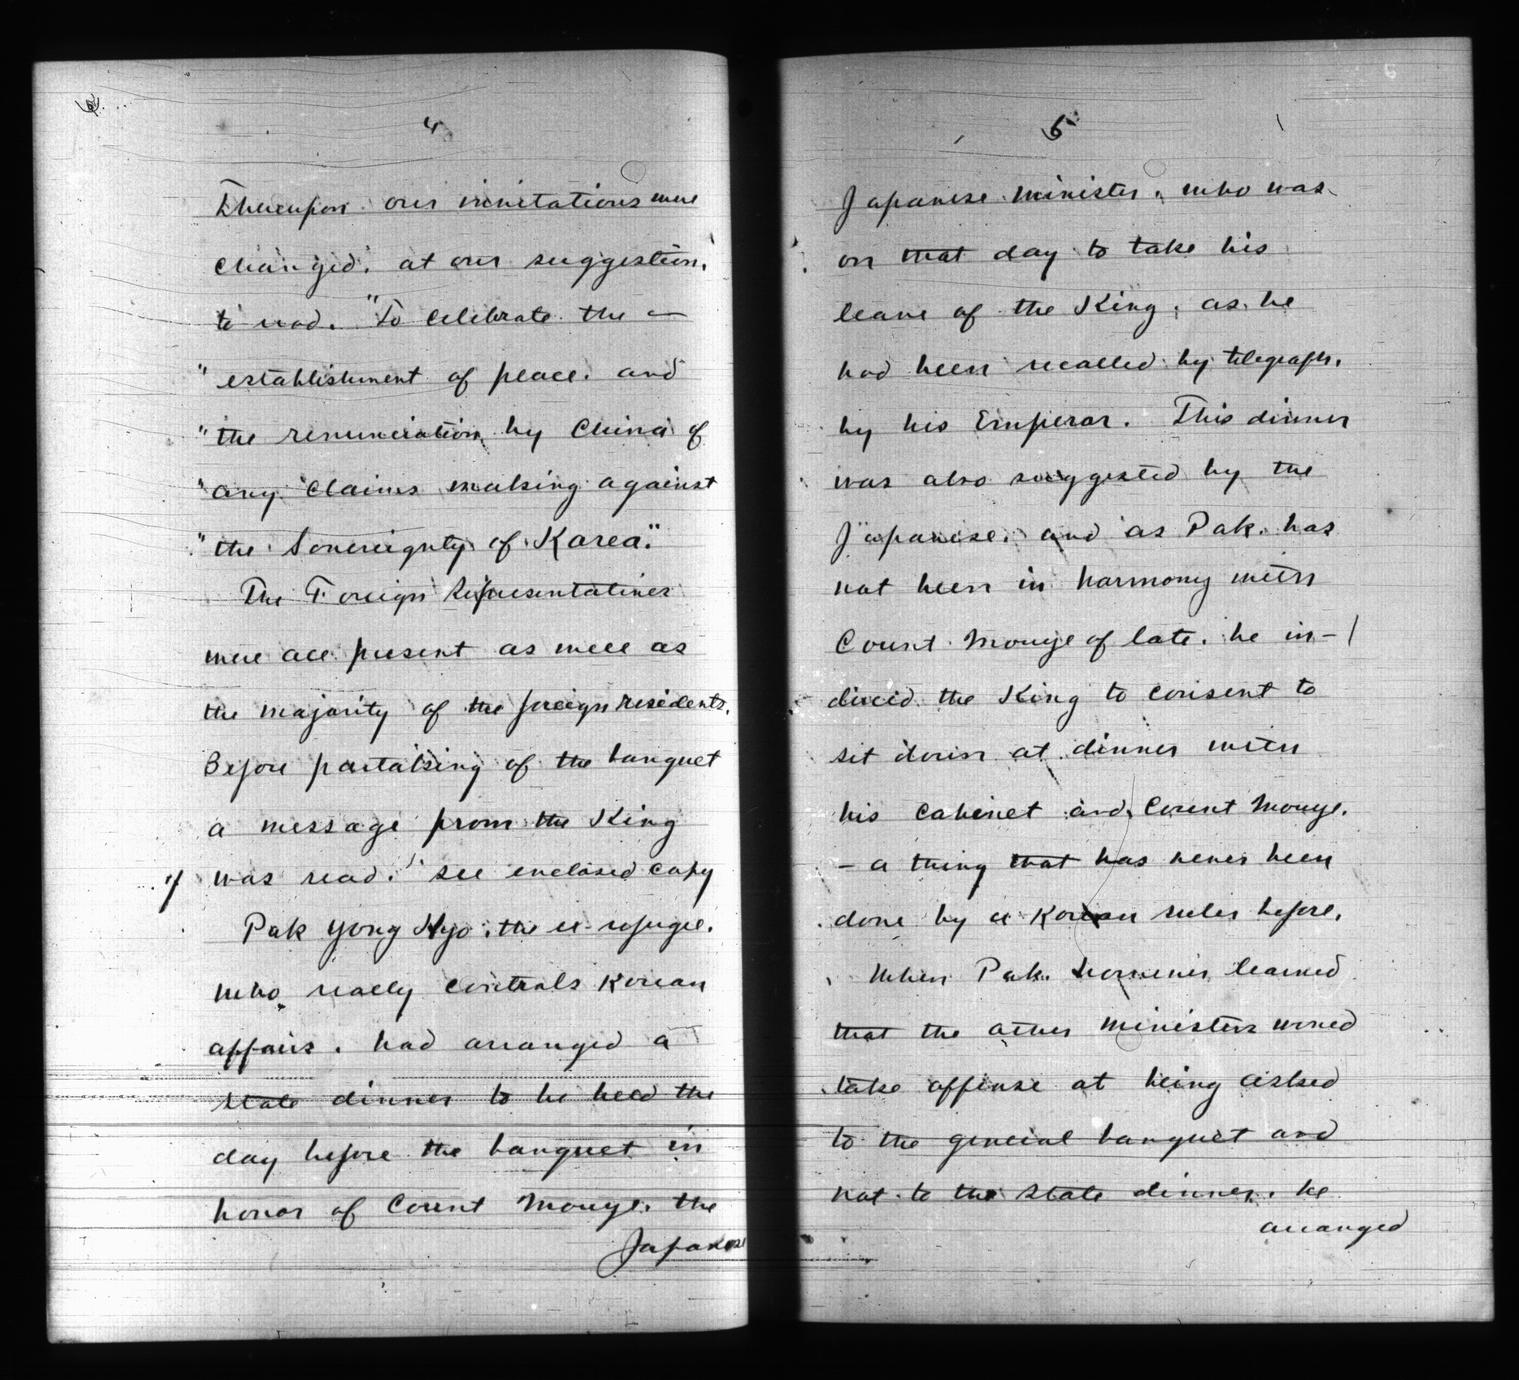 4
Thereupon our invitations were
changed, at our suggestion,
to read. "To celebrate the —
"establishment of peace. and
"the renunciation by China of
"any claims making against
"the Sovereignty of Korea."
The Foreign Representatives
were all present as well as
the majority of the foreign residents.
Before partaking of the banquet
a message from the King
was read. see enclosed copy
Pak Yong Hyo, the ex-refugee,
who really controls Korean
affairs, had arranged a
state dinner to be held the
day before the banquet in
honor of Count Inouye, the
Japanese
5
Japanese Minister, who was
on that day to take his
leave of the King, as he
had been recalled by telegraph,
by his Emperor. This dinner
was also suggested by the
Japanese, and as Pak has
not been in harmony with
Count Inouye of late, he in-
duced the King to consent to
sit down at dinner with
his Cabinet and Count Inouye,
— a thing that has never been
done by a Korean ruler before.
When Pak however learned
that the other Ministers would
take offense at being asked
to the general banquet and
not to the state dinner, he
arranged